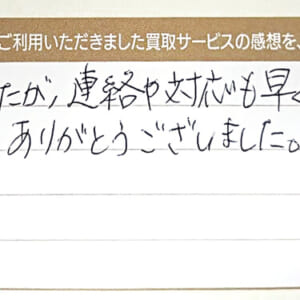 ご利用いただきました買取サービスの感想を、
たが、連絡や対応も早く
ありがとうございました。